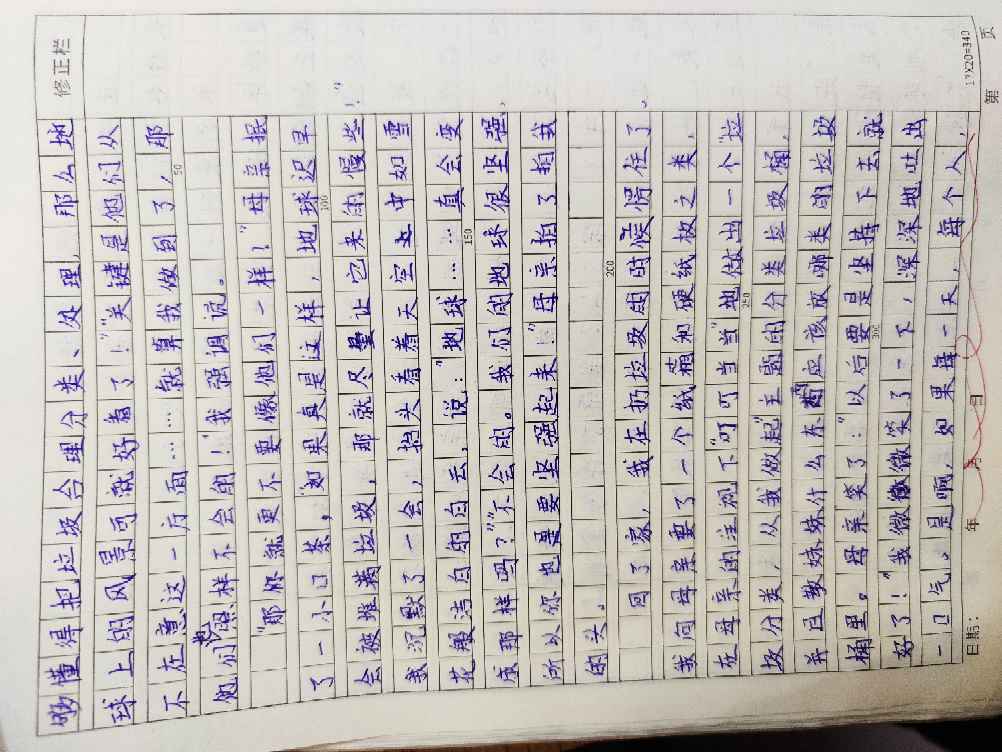 修正栏
够懂得把垃圾合理分类、处理,那么地
球上的风景可就好看了!"关键是他们从
不在意这一方面……就算我做到了,那
他们照样不会的!"我强调说。
"那你就更不要像他们一样!"母亲抿
了一小口茶,"如果真是这样,地球迟早
会被堆满垃圾,那就尽量让它来的慢些!"
我沉默了一会,抬头看着天空中如雪
花般洁白的白云,说:"地球……真会变
成那样吗?""不会的。我们的地球很坚强,
所以你也是要坚强起来!"母亲拍了拍我
的头。
回了家,我在扔垃圾的时候愣住了。
我向母亲要了一个纸箱和硬纸板之类,
在母亲的注视下"叮叮当当"地做出一个"垃
圾分类,从我做起"主题的分类垃圾桶,
并且教妹妹什么东西应该放哪类的垃圾
桶里。母亲笑了:"以后要是坚持下去就
好了!"我微微笑了一下,深深地吐出
一口气。是啊,如果每一天,每个人,
50
100
150
200
250
300
日期: 年 月 日
17X20=340
第 页